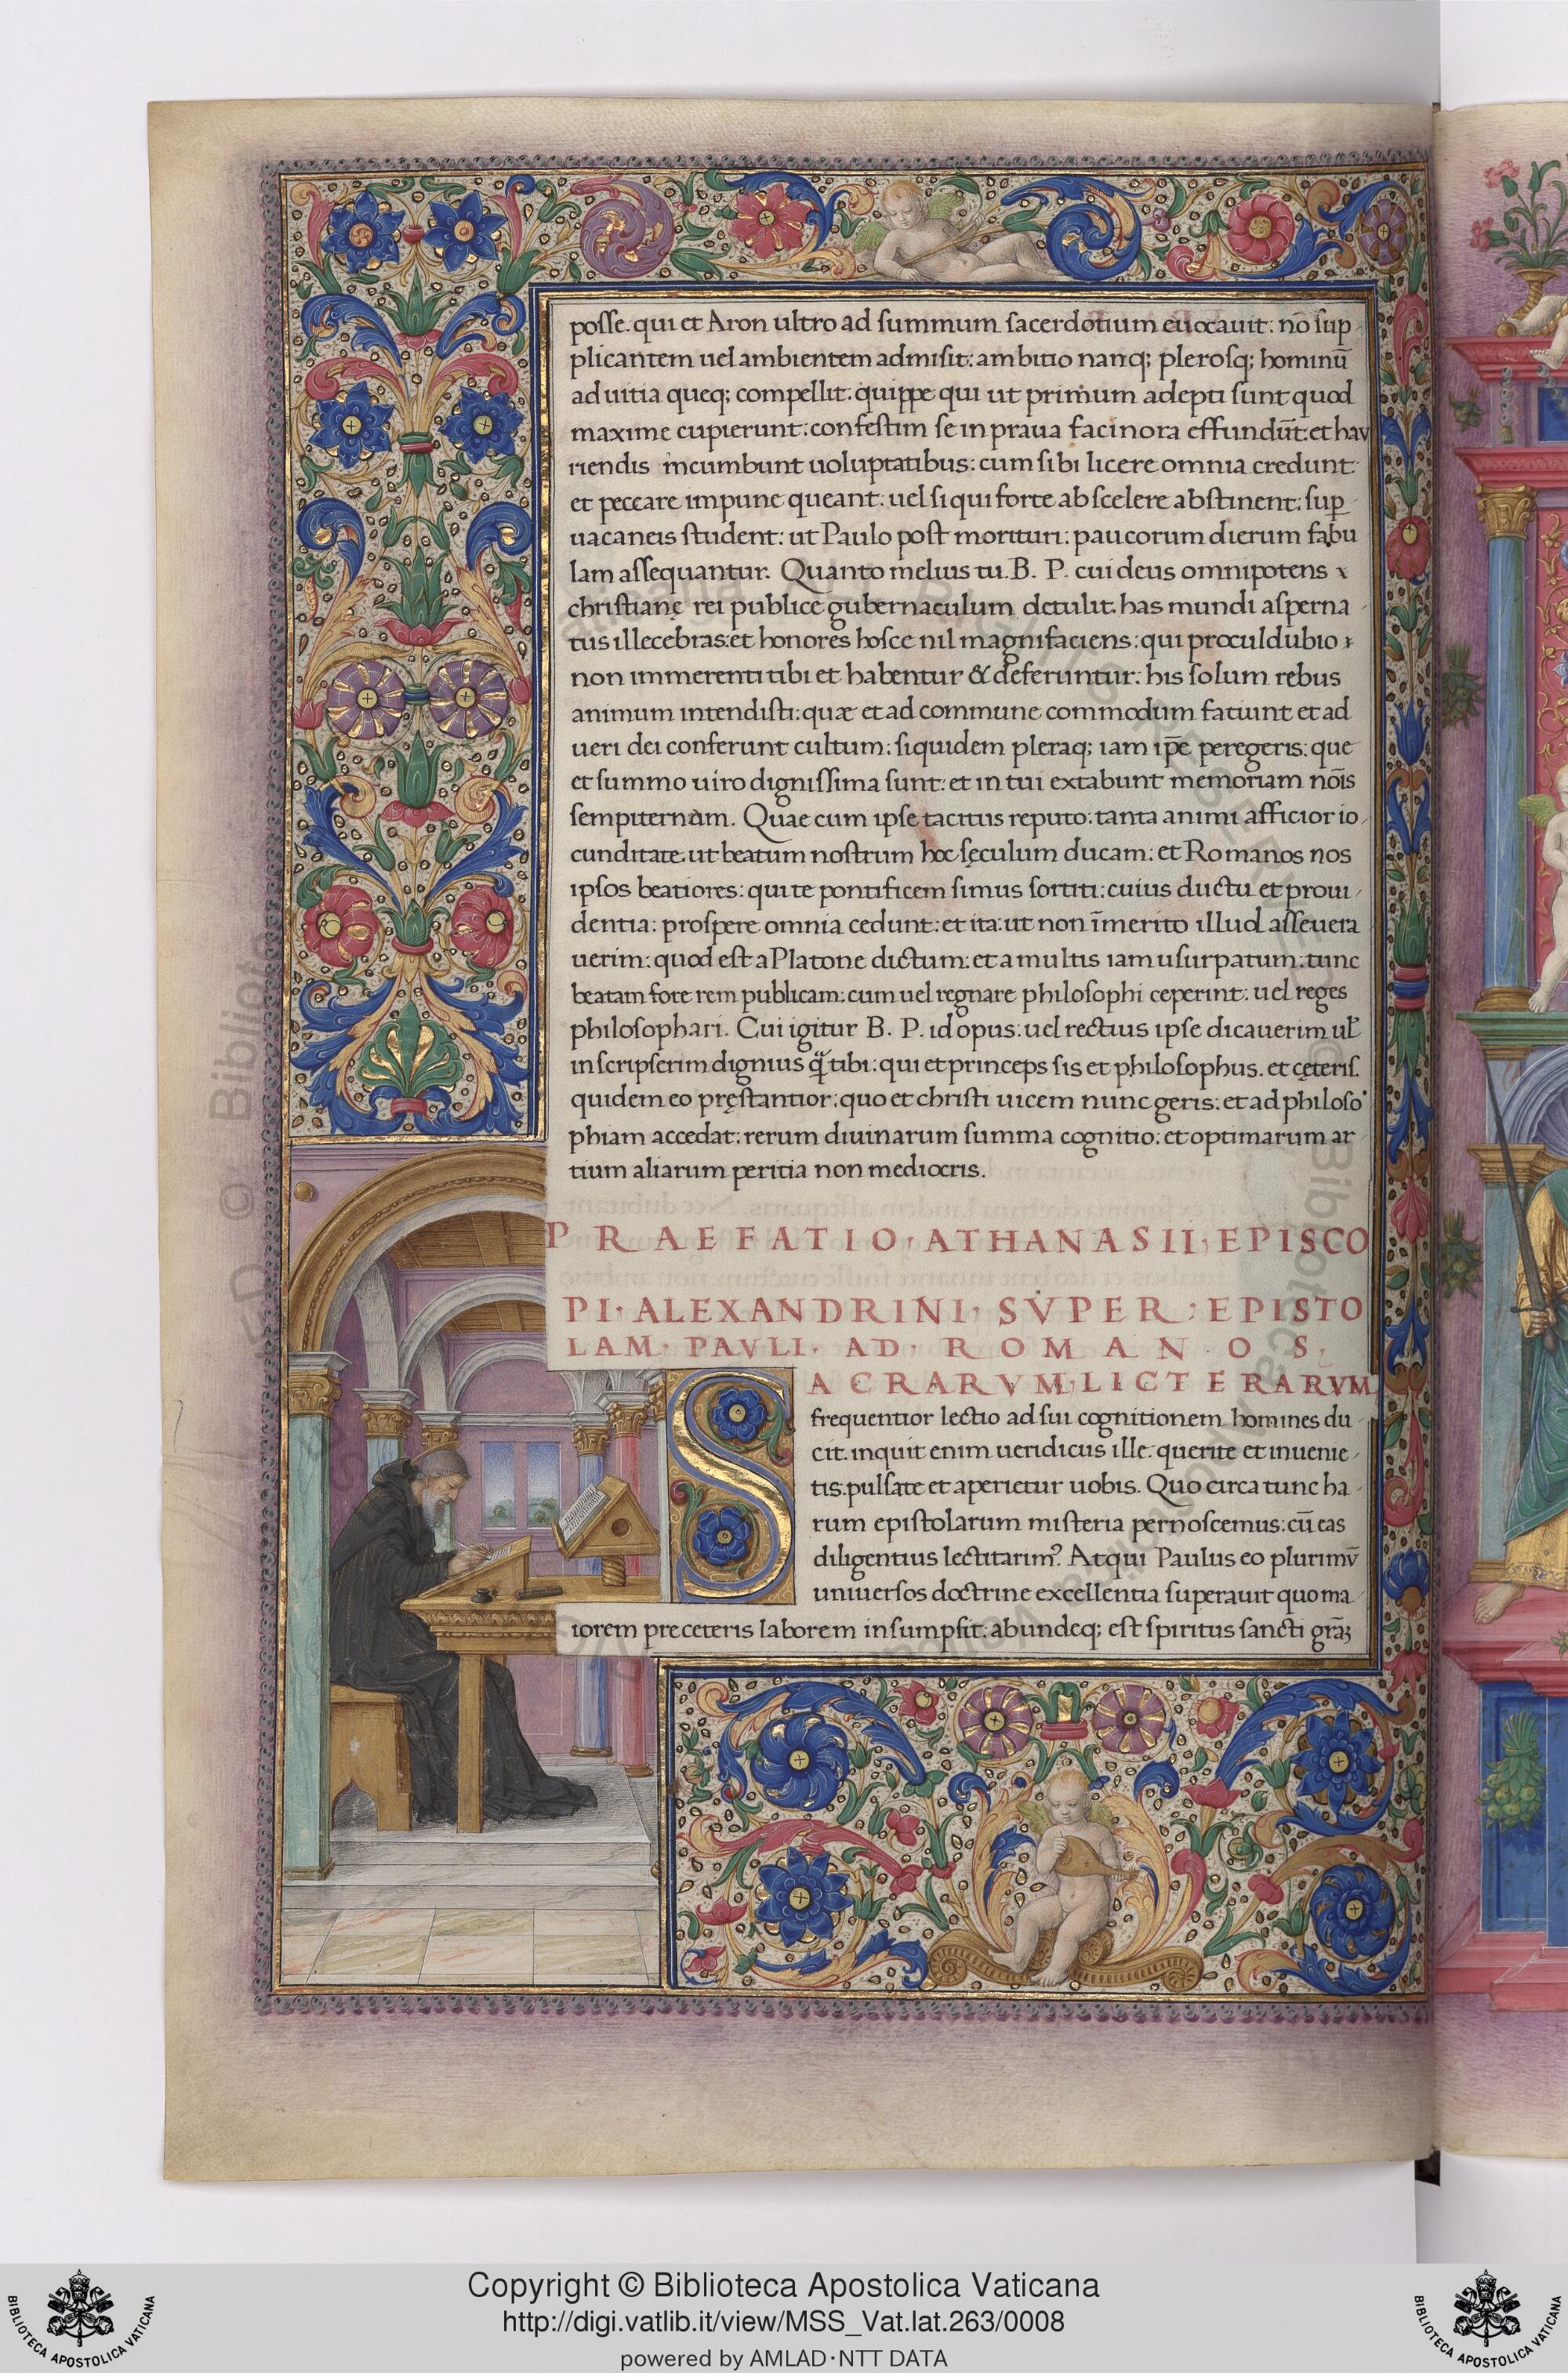 posse. qui et Aron ultro ad summum sacerdotium euocauit: nō sup
plicantem uel ambientem admisit: ambitio nanq; plerosq; hominū
ad uitia queq; compellit: quippe qui ut primum adepti sunt quod
maxime cupierunt: confestim se in praua facinora effundūt: et hau
riendis incumbunt uoluptatibus: cum sibi licere omnia credunt:
et peccare impune queant: uel si qui forte ab scelere abstinent: suꝑ
uacaneis student: ut Paulo post morituri: paucorum dierum fabu
lam assequantur. Quanto melius tu. B. P. cui deus omnipotens
christianę rei publice gubernaculum detulit. has mundi asperna
tus illecebras: et honores hosce nil magnifaciens: qui proculdubio
non immerenti tibi et habentur & deferuntur: his solum rebus
animum intendisti: quæ et ad commune commodum faciunt et ad
ueri dei conferunt cultum: siquidem pleraq; iam ip̄e peregeris: que
et summo uiro dignissima sunt: et in tui extabunt memoriam nōis
sempiternam. Quae cum ipse tacitus reputo: tanta animi afficior io
cunditate. ut beatum nostrum hoc sęculum ducam: et Romanos nos
ipsos beatiores: qui te pontificem simus sortiti: cuius ductu et proui
dentia: prospere omnia cedunt: et ita: ut non īmerito illud asseuera
uerim: quod est a Platone dictum: et a multis iam usurpatum: tunc
beatam fore rem publicam: cum uel regnare philosophi ceperint: uel reges
philosophari. Cui igitur B. P. id opus: uel rectius ipse dicauerim ul̄
inscripserim dignius q̄ tibi: qui et princeps sis et philosophus. et cęteris
quidem eo pręstantior: quo et christi uicem nunc geris: et ad philoso
phiam accedat: rerum diuinarum summa cognitio: et optimarum ar
tium aliarum peritia non mediocris.
PRAEFATIO· ATHANASII· EPISCO
PI· ALEXANDRINI· SVPER· EPISTO
LAM· PAVLI· AD· ROMANOS·
SACRARVM· LICTERARVM
frequentior lectio ad sui cognitionem homines du
cit. inquit enim ueridicus ille. querite et inuenie
tis. pulsate et aperietur uobis. Quo circa tunc ha
rum epistolarum misteria pernoscemus: cū eas
diligentius lectitarim? Atqui Paulus eo plurimū
uniuersos doctrine excellentia superauit quo ma
iorem pre ceteris laborem insumpsit: abundeq; est spiritus sancti
Copyright © Biblioteca Apostolica Vaticana
http://digi.vatlib.it/view/MSS_Vat.lat.263/0008
powered by AMLAD·NTT DATA
BIBLIOTECA APOSTOLICA VATICANA
BIBLIOTECA APOSTOLICA VATICANA